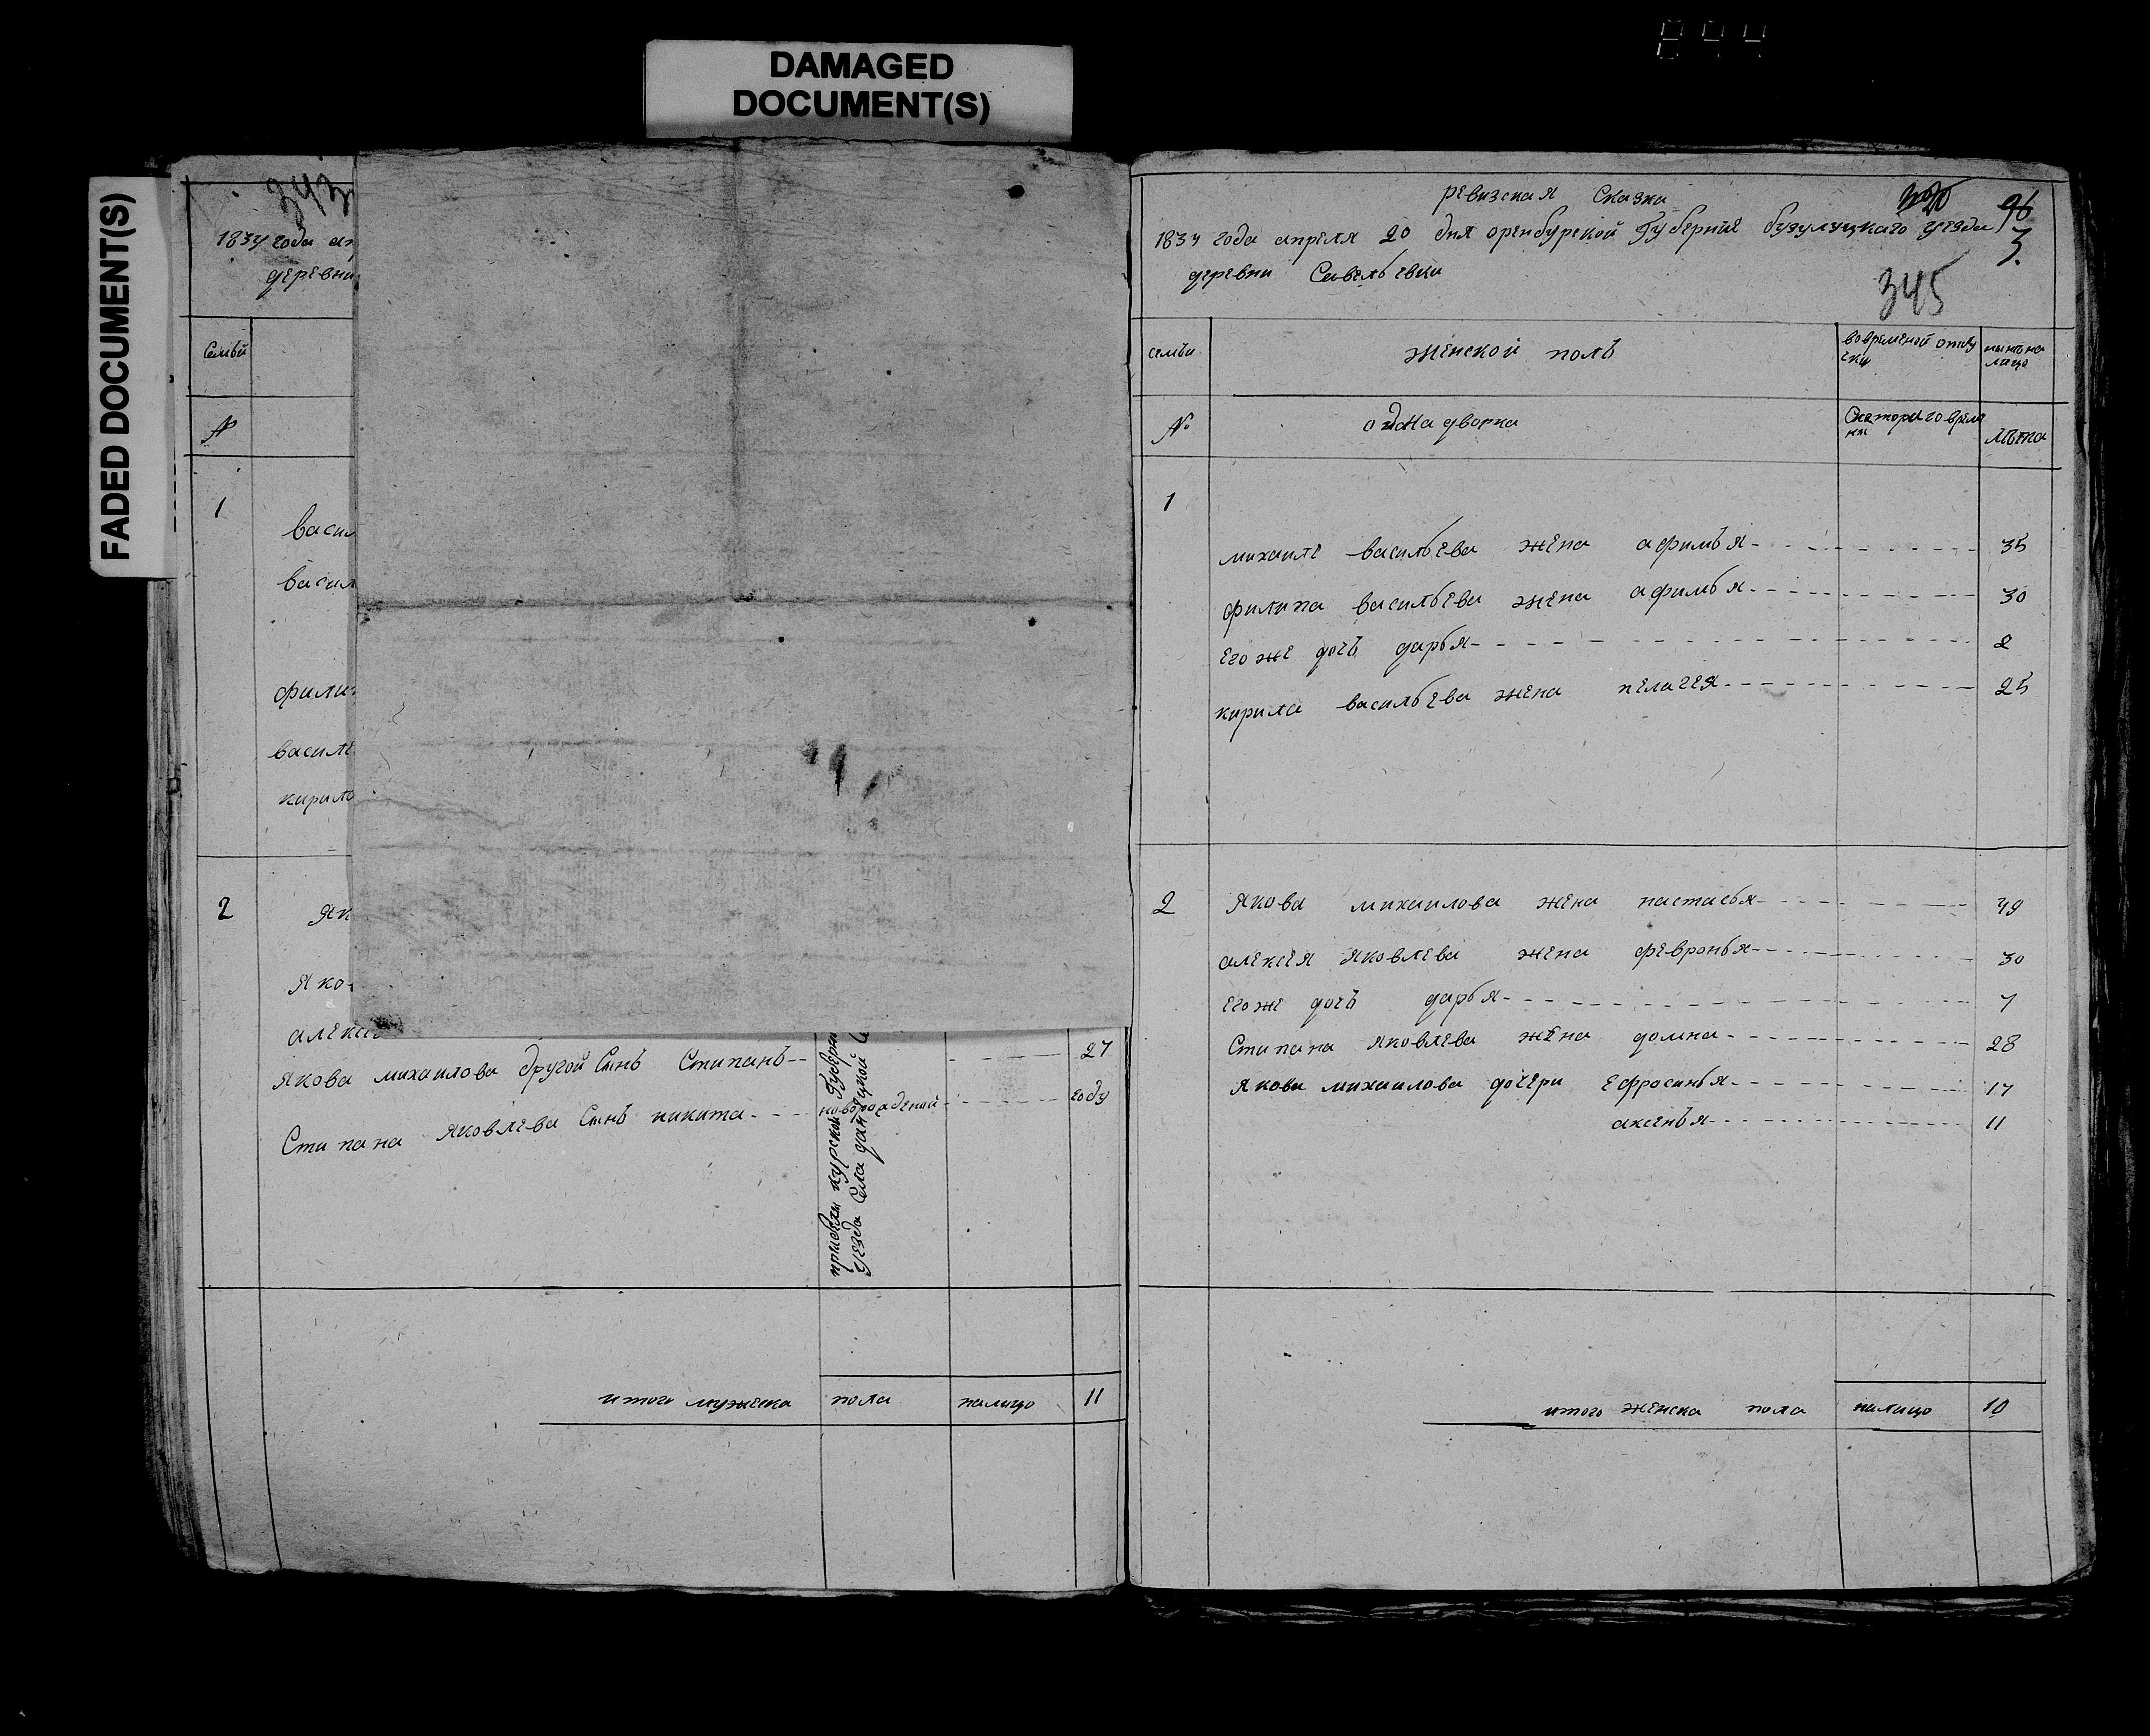 DAMAGED
DOCUMENT(S)
FADED DOCUMENT(S)
343
1834 года ап
деревни
семьи
№
1
васил
васил
филип
василе
кирило
2
як
яко
алексе
якова михаилова другой сынъ стипанъ 27
новорожденой году
стипана яковлева сынъ никита
приехали курской губерни
уезда села
итого мужеска пола налицо 11
ревизская сказка
96
3.
1834 года апреля 20 дня оренбурской губернiи бузулуцкаго уезда
деревни савельевки
345
семьи женской полъ вовременой отлу нынѣ на
чки лицо
№ однадворка скаторого време
ни лѣта
1
михаиле васильева жена афимья 35
филипа васильева жена афимья 30
его же дочь дарья 2
кирила васильева жена пелагея 25
2 якова михаилова жена настасья 49
алексея яковлева жена февронья 30
его же дочь дарья 7
стипана яковлева жена домна 28
якова михаилова дочери ефросинья 17
аксенья 11
итого женска пола налицо 10